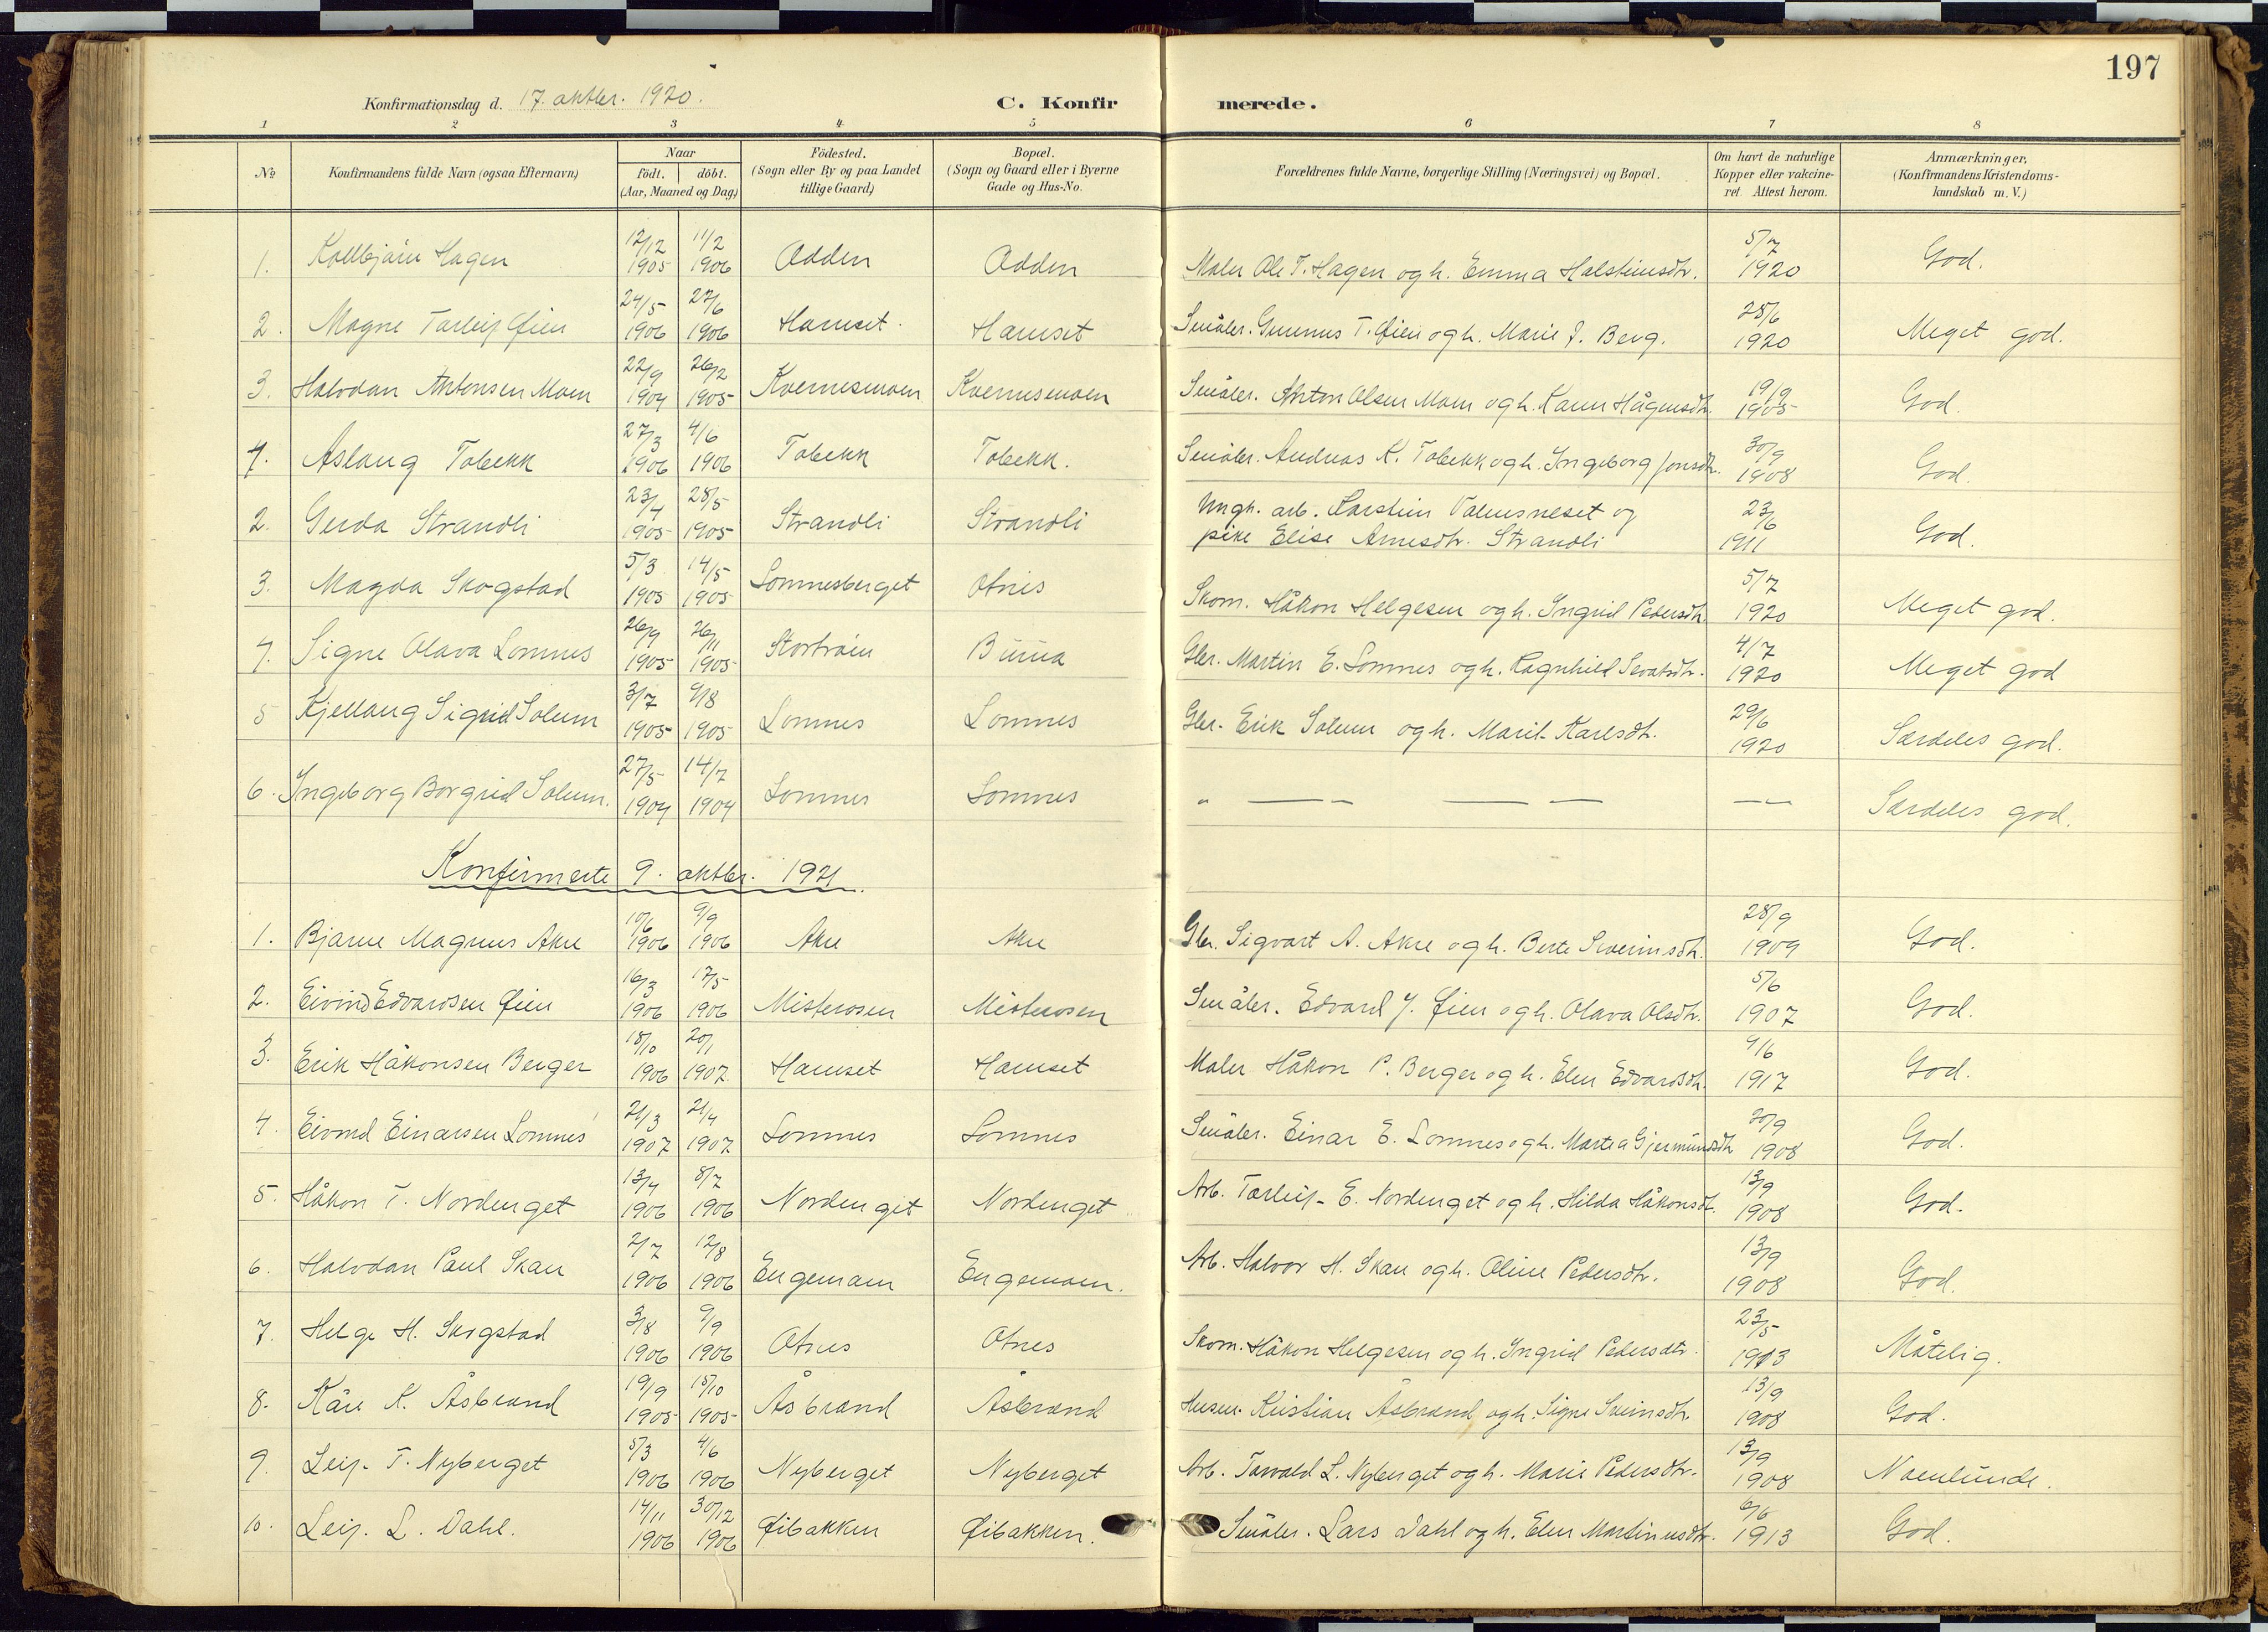 197
Konfirmationsdag d. 17. oktbr. 1920.
C. Konfirmerede.
1 2 3 4 5 6 7 8
No Konfirmandens fulde Navn (ogsaa Efternavn) Naar födt. döbt. (Aar, Maaned og Dag) Födested. (Sogn eller By og paa Landet tillige Gaard) Bopæl. (Sogn og Gaard eller i Byerne Gade og Hus-No. Forældrenes fulde Navne, borgerlige Stilling (Næringsvei) og Bopæl. Om havt de naturlige Kopper eller vakcineret. Attest herom. Anmærkninger, (Konfirmandens Kristendomskundskab m. V.)
1. Kolbjørn Hagen 12/12 1905 11/2 1906 Odden Odden Maler Ole T. Hagen og h. Emma Halstensdtr. 5/7 1920 God.
2. Magne Torleif Øien 24/5 1906 27/6 1906 Hamset. Hamset Småbr. Gunnus T. Øien og h. Marie J. Berg. 28/6 1920 Meget god.
3. Halvdan Antonsen Moen 22/9 1904 26/2 1905 Kvernesmoen Kvernesmoen Småbr. Anton Olsen Moen og h. Karen Hågensdtr. 19/9 1905 God.
4. Aslaug Tobekk 27/3 1906 4/6 1906 Tobekk Tobekk. Småbr. Andreas K. Tobekk og h. Ingeborg Jonsdtr. 30/9 1908 God.
2. Gerda Strandli 23/4 1905 28/5 1905 Strandli Strandli Ungk. arb. Karstein Valmsneset og
pike Elise Arnesdtr. Strandli 23/6 1911 God.
3. Magda Skogstad 5/3 1905 14/5 1905 Lomnesberget Otnes Skom. Håkon Helgesen og h. Ingrid Pedersdtr. 5/7 1920 Meget god.
4. Signe Olava Lomnes 26/9 1905 26/11 1905 Stortrøen Burua Gbr. Martin E. Lomnes og h. Ragnhild Sivatsdtr. 4/7 1920 Meget god
5 Kjellaug Sigrid Solum 3/7 1905 9/8 1905 Lomnes Lomnes Gbr. Erik Solum og h. Marit Karlsdtr. 29/6 1920 Særdeles god.
6. Ingeborg Borgrid Solum. 27/5 1904 14/7 1904 Lomnes Lomnes " — — — — — Særdeles god.
Konfirmerte 9. oktbr. 1921.
1. Bjarne Magnus Akre 10/6 1906 9/9 1906 Akre Akre Gbr. Sigvart A. Akre og h. Berte Sverinsdtr. 28/9 1909 God.
2. Eivind Edvardsen Øien 16/3 1906 17/5 1906 Misterosen Misterosen Småbr. Edvard J. Øien og h. Olava Olsdtr. 5/6 1907 God.
3. Erik Håkonsen Berger 18/10 1906 20/1 1907 Hamset Hamset Maler Håkon P. Berger og h. Elen Edvardsdtr. 9/6 1917 God.
4. Eivind Einarsen Lomnes 21/3 1907 21/4 1907 Lomnes Lomnes Småbr. Einar E. Lomnes og h. Martea Gjermundsdtr 30/9 1908 God.
5. Håkon T. Nordenget 13/4 1906 8/7 1906 Nordenget Nordenget Arb. Torleif E. Nordenget og h. Hilda Håkonsdt. 13/9 1908 God.
6. Halvdan Paul Skau 2/7 1906 12/8 1906 Engemoen Engemoen. Arb. Halvor H. Skau og h. Oline Pedersdtr. 13/9 1908 God.
7. Helge H. Skogstad 3/8 1906 9/9 1906 Otnes Otnes Skom. Håkon Helgesen og h. Ingrid Pedersdtr. 23/5 1913 Måtelig.
8. Kåre K. Åsbrand 19/9 1905 15/10 1905 Åsbrand Åsbrand Husm. Kristian Åsbrand og h. Signe Sveinsdtr. 13/9 1908 God.
9. Leif T. Nyberget 5/3 1906 4/6 1906 Nyberget Nyberget Arb. Torvald L. Nyberget og h. Marie Pedersdtr. 13/9 1908 Noenlunde.
10. Leif L. Dahl. 14/11 1906 30/12 1906 Øibakken Øibakken. Småbr. Lars Dahl og h. Elen Martinusdtr. 6/6 1913 God.